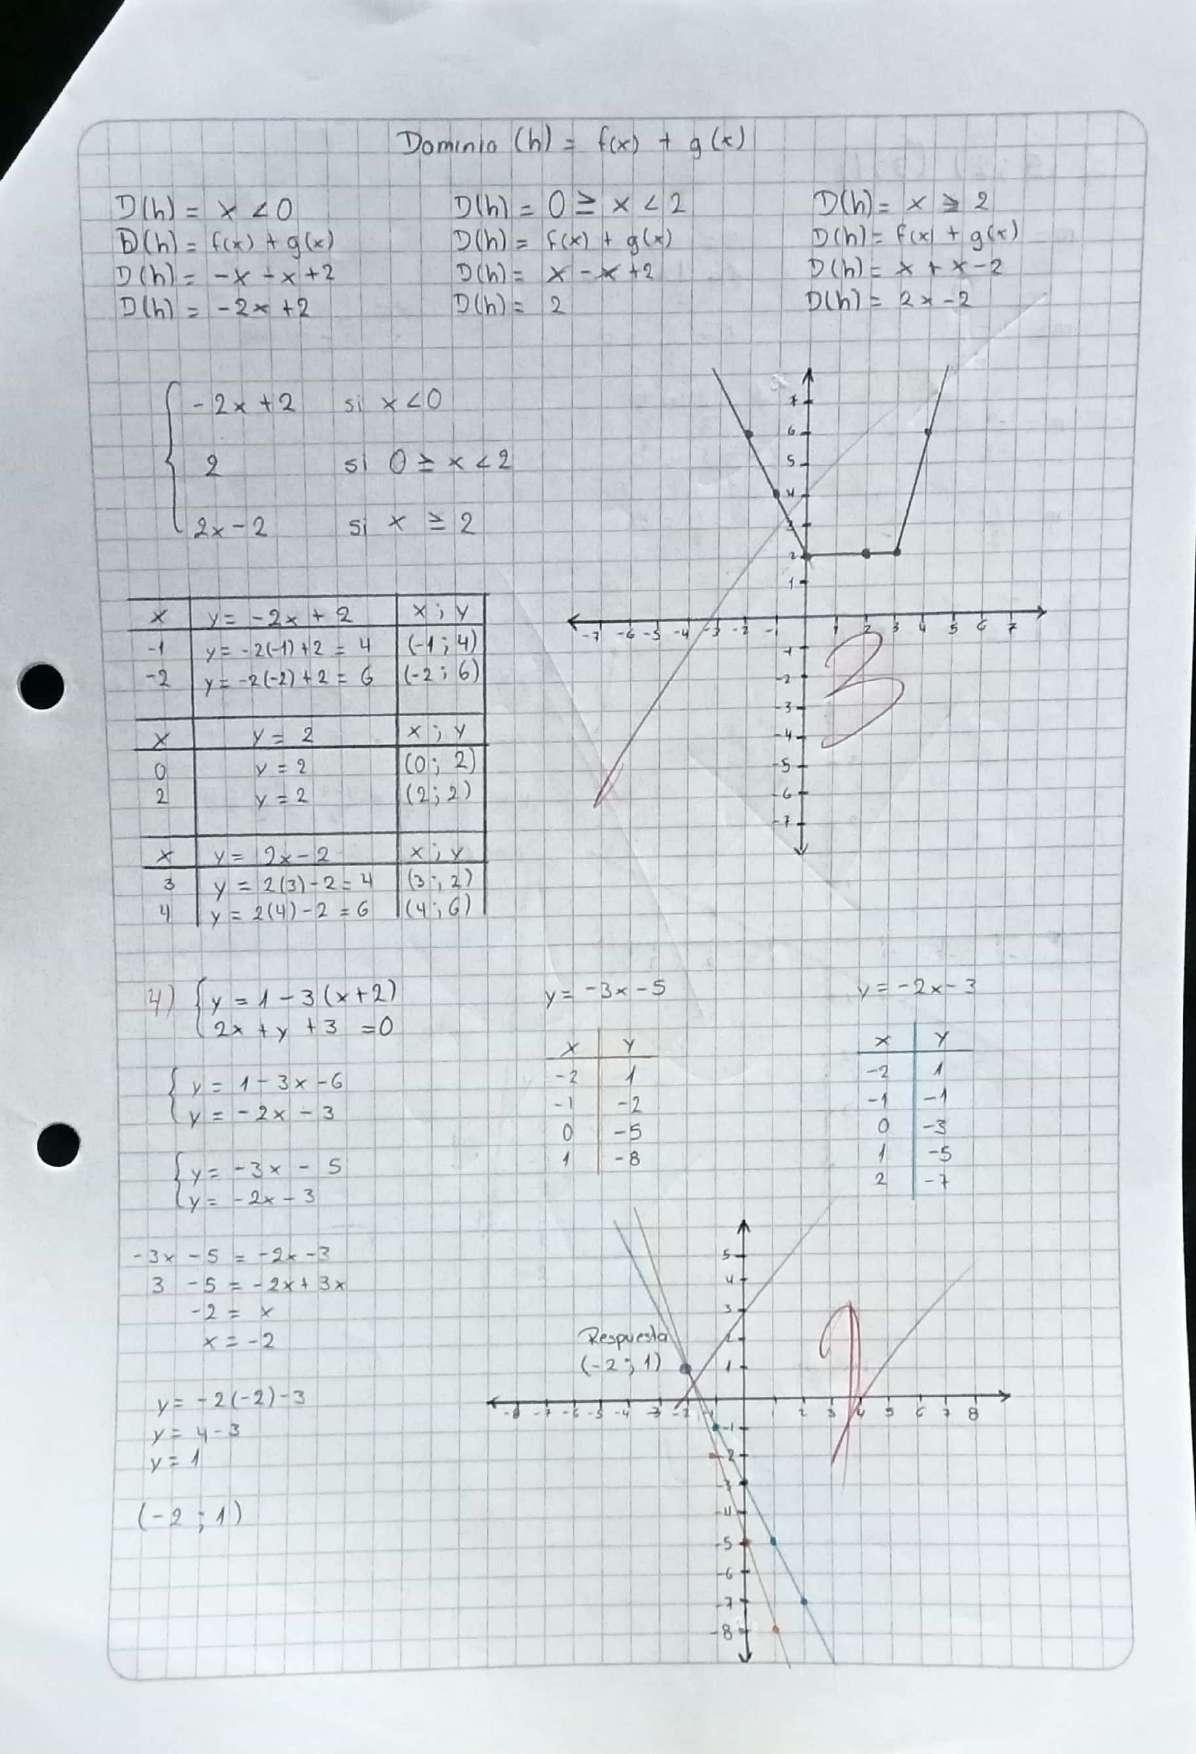 Dominio (h) = f(x) + g(x)
D(h) = x < 0
D(h) = f(x) + g(x)
D(h) = -x - x + 2
D(h) = -2x + 2
D(h) = 0 ≥ x < 2
D(h) = f(x) + g(x)
D(h) = x - x + 2
D(h) = 2
D(h) = x ≥ 2
D(h) = f(x) + g(x)
D(h) = x + x - 2
D(h) = 2x - 2
-2x + 2 si x < 0
2 si 0 ≥ x < 2
2x - 2 si x ≥ 2
7
6
5
4
3
2
1
-7 -6 -5 -4 -3 -2 -1 1 2 3 4 5 6 7
-1
-2
-3
-4
-5
-6
-7
3
x y = -2x + 2 x ; y
-1 y = -2(-1) + 2 = 4 (-1 ; 4)
-2 y = -2(-2) + 2 = 6 (-2 ; 6)
x y = 2 x ; y
0 y = 2 (0 ; 2)
2 y = 2 (2 ; 2)
x y = 2x - 2 x ; y
3 y = 2(3) - 2 = 4 (3 ; 2)
4 y = 2(4) - 2 = 6 (4 ; 6)
4) { y = 1 - 3(x + 2)
2x + y + 3 = 0
{ y = 1 - 3x - 6
y = -2x - 3
{ y = -3x - 5
y = -2x - 3
-3x - 5 = -2x - 3
3 - 5 = -2x + 3x
-2 = x
x = -2
y = -2(-2) - 3
y = 4 - 3
y = 1
(-2 ; 1)
y = -3x - 5
x y
-2 1
-1 -2
0 -5
1 -8
y = -2x - 3
x y
-2 1
-1 -1
0 -3
1 -5
2 -7
5
4
3
2
1
Respuesta
(-2 ; 1)
-8 -7 -6 -5 -4 -3 -2 -1 1 2 3 4 5 6 7 8
-1
-2
-3
-4
-5
-6
-7
-8